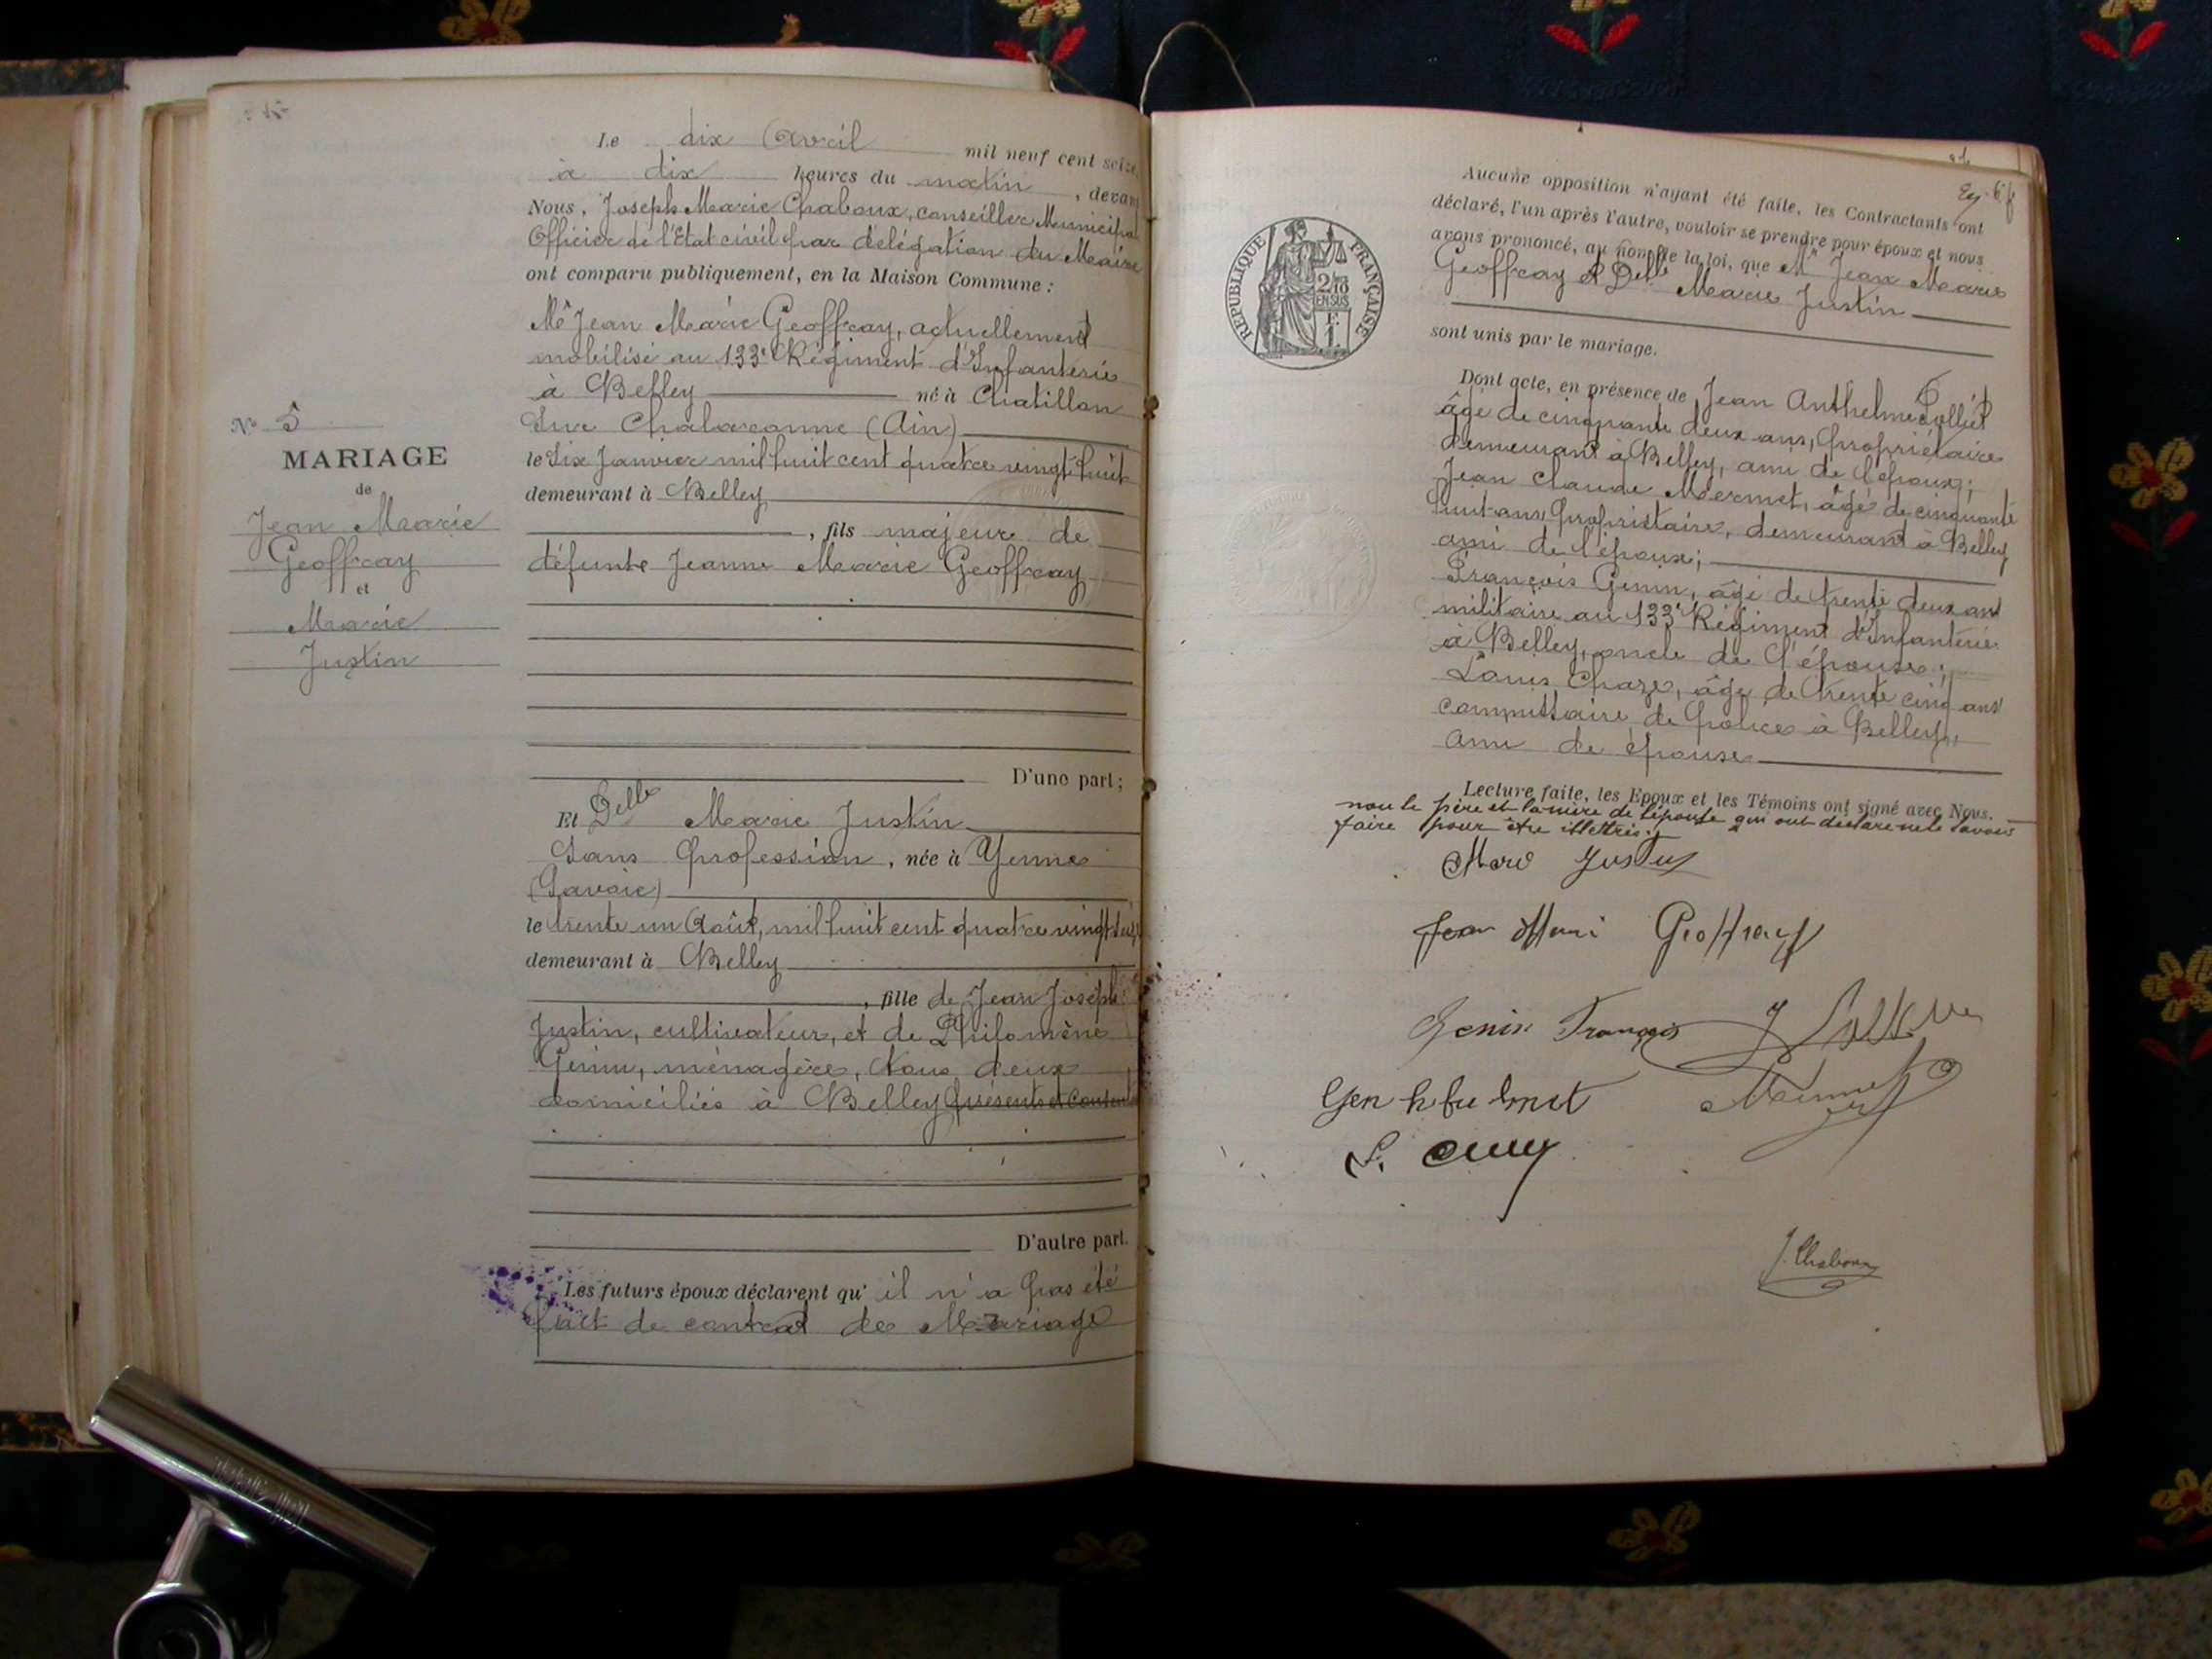 Le dix Avril mil neuf cent seize,
à dix heures du matin, devant
Nous, Joseph Marie Chaboux, conseiller Municipal
Officier de l'Etat civil par délégation du Maire
ont comparu publiquement, en la Maison Commune :
Mr Jean Marie Geoffray, actuellement
mobilisé au 133e Régiment d'Infanterie
à Belley né à Chatillon
Sur Chalaronne (Ain)
le Six Janvier mil huit cent quatre vingt huit
demeurant à Belley
, fils majeur de
défunte Jeanne Marie Geoffray
D'une part ;
No 5
MARIAGE
de
Jean Marie
Geoffray
et
Marie
Justin
Et Delle Marie Justin
Sans profession, née à Yenne
(Savoie)
le trente un Août, mil huit cent quatre vingt
demeurant à Belley
, fille de Jean Joseph
Justin, cultivateur, et de Philomène
Genin, ménagère, tous deux
domiciliés à Belley présents et consent
D'autre part.
Les futurs époux déclarent qu'il n'a pas été
fait de contrat de Mariage
Aucune opposition n'ayant été faite, les Contractants ont
déclaré, l'un après l'autre, vouloir se prendre pour époux et nous
avons prononcé, au nom de la loi, que Mr Jean Marie
Geoffray et Delle Marie Justin
sont unis par le mariage.
REPUBLIQUE FRANÇAISE
2/10
EN SUS
F.
1.
Dont acte, en présence de Jean Anthelme Collet
âgé de cinquante deux ans, propriétaire
demeurant à Belley, ami de l'époux ;
Jean Claude Mermet, âgé de cinquante
huit ans, propriétaire, demeurant à Belley
ami de l'époux ;
François Genin, âgé de trente deux ans
militaire au 133e Régiment d'Infanterie
à Belley, oncle de l'épouse ;
Louis Chaze, âgé de trente cinq ans
commissaire de police à Belley,
ami de épouse
Lecture faite, les Epoux et les Témoins ont signé avec Nous.
non le père et la mère de l'épouse qui ont déclaré ne le savoir
faire pour être illettrés.
Jean Mari Geoffray
Genin François
Mermet
J. Chaboux